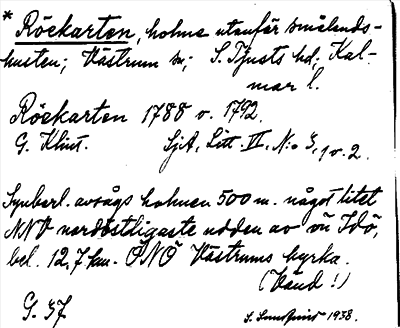 * Röekarten, holme utanför smålands-
kusten; Västrum sn; S. Tjusts hd; Kal-
mar l.
Röekarten 1788 o. 1792.
G. Klint. SjA, Litt. VI, N:o 3, 1 o. 2.
Synberl. avsågs holmen 500 m. något litet
NNV nordostligaste udden av ön Idö,
bel. 12,7 km. ONO Västrums kyrka.
(Vänd!)
G. 37 1938.